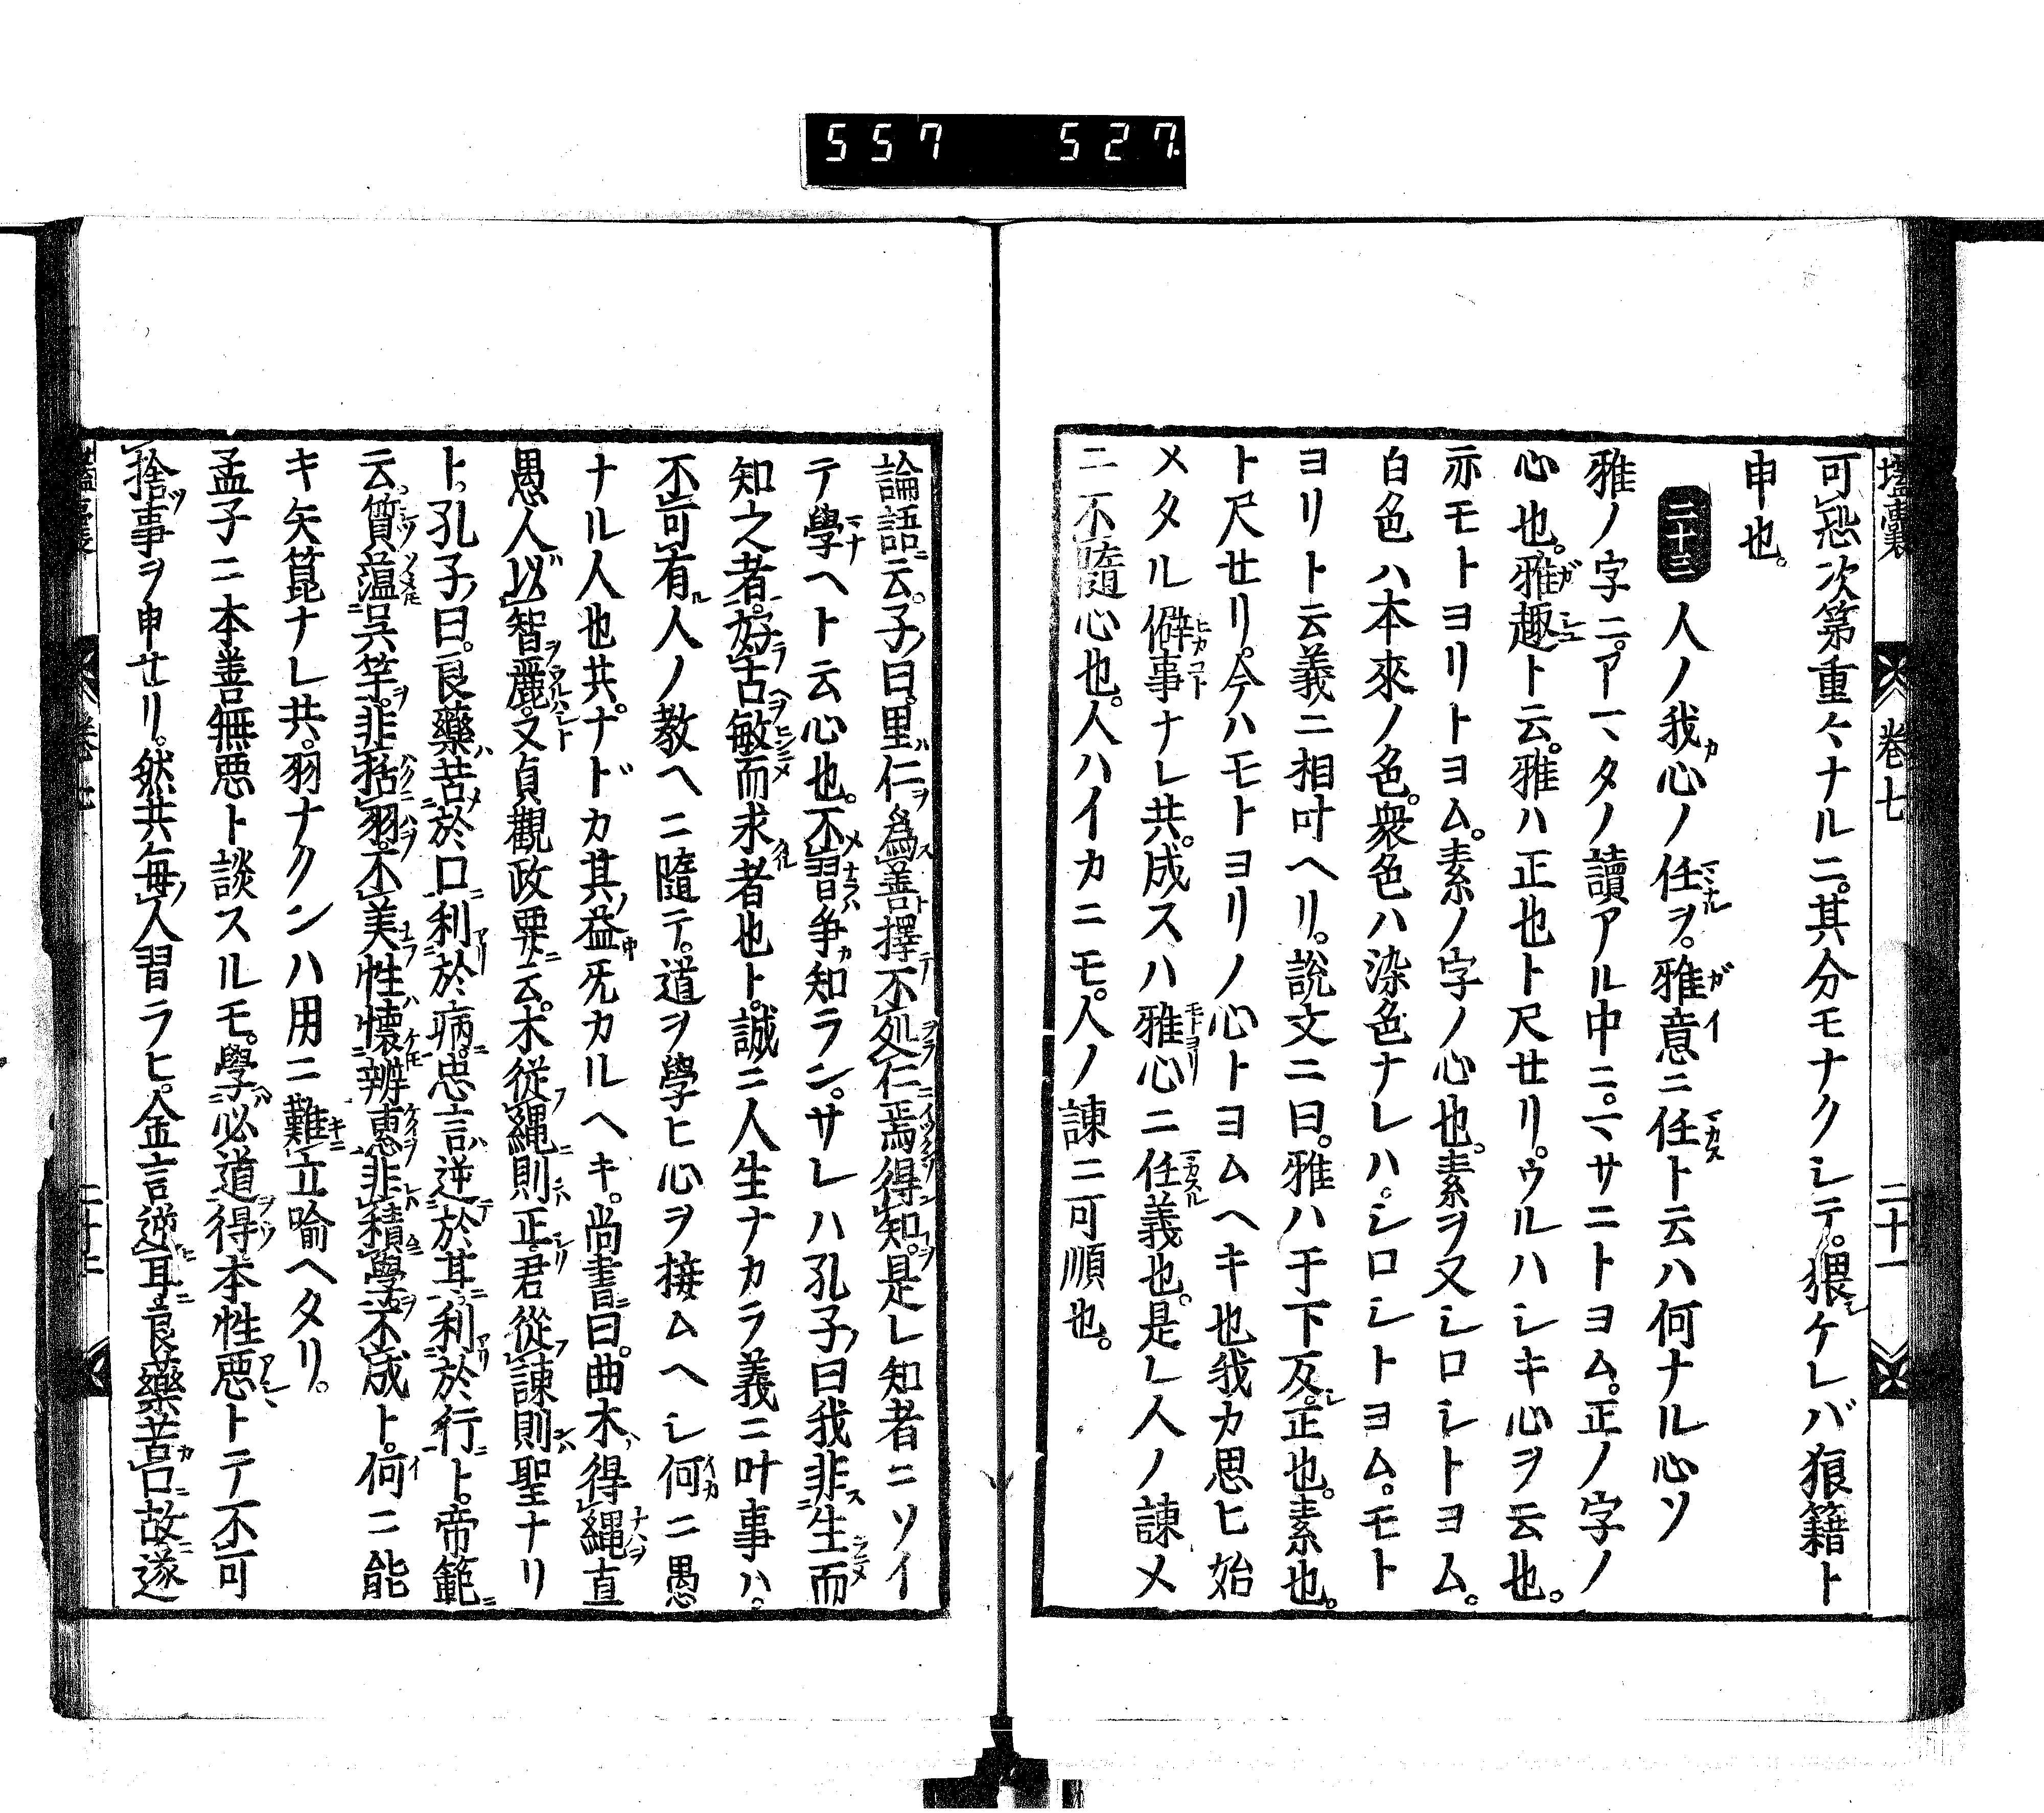 557 527.
壒囊 卷七 二十一
可恐次第重々ナルニ。其分モナクシテ。猥ケレバ狼籍ト
申也。
二十三 人ノ我心ノ任ヲ。雅意ニ任ト云ハ何ナル心ソ
雅ノ字ニ。アマタノ讀アル中ニ。マサニトヨム。正ノ字ノ
心也。雅趣ト云。雅ハ正也ト尺せリ。ウルハシキ心ヲ云也。
亦モトヨリトヨム。素ノ字ノ心也。素ヲ又シロシトヨム。
白色ハ本來ノ色。衆色ハ染色ナレハ。シロシトヨム。モト
ヨリト云義ニ相叶ヘリ。說文ニ曰。雅ハ于下反。正也。素也。
ト尺せリ。今ハモトヨリノ心トヨムヘキ也我カ思ヒ始
メタル僻事ナレ共。成スハ雅心ニ任義也。是レ人ノ諫メ
ニ不隨心也。人ハイカニモ。人ノ諫ニ可順也。
論語云。子曰。里仁爲善擇不処仁焉得知。是レ知者ニソイ
テ學ヘト云心也。不習争知ラン。サレハ孔子曰我非生而
知之者。好古敏而求者也ト。誠ニ人生ナカラ義ニ叶事ハ。
不可有人ノ教ヘニ隨テ。道ヲ學ヒ心ヲ接ムヘシ何ニ愚
ナル人也共。ナドカ其益无カルヘキ。尚書曰。曲木得縄直
愚人以智麗。又貞觀政要云。木從縄則正。君從諫則聖ナリ
ト。孔子曰。良藥苦於口利於病。忠言逆於耳利於行ト。帝範
云。質蘊呉竿。非括羽。不美性懐辨恵非積學不成ト。何ニ能
キ矢箆ナレ共。羽ナクンハ用ニ難立喩ヘタリ。
孟子ニ本善無悪ト談スルモ。學必道得本性悪トテ不可
捨事ヲ申せリ。然共毎人習ラヒ。金言逆耳。良藥苦口故遂